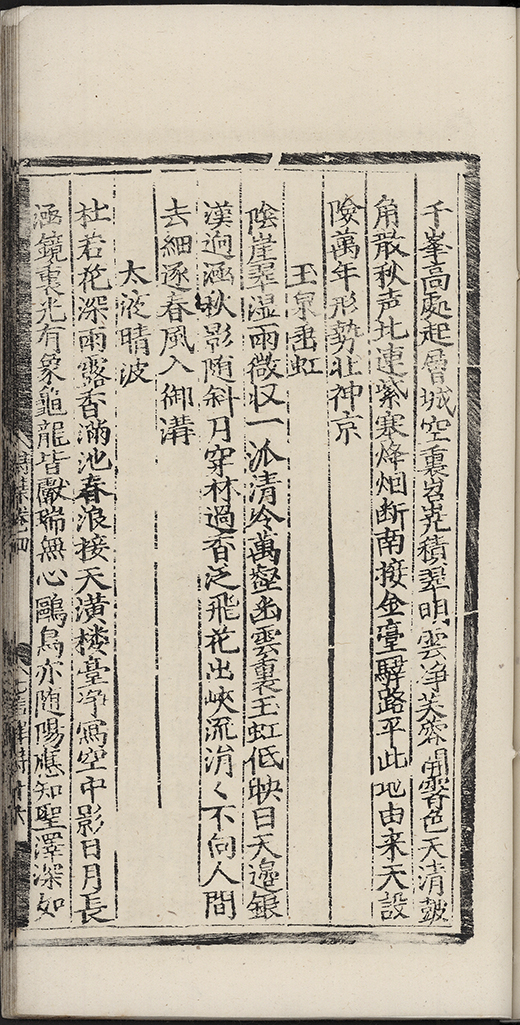 千峯高處起層城空裏岧嶤積翠明雲净芙蓉開霽色天清皷
角散秋声北連紫塞烽烟断南接金臺驛路平此地由来天設
險萬年形勢壮神京
玉泉垂虹
陰崖翠湿雨微収一派清冷萬壑幽雲裏玉虹低映日天邊銀
漢逈涵秋影随斜月穿林過香泛飛花出峽流涓〻不向人間
去細逐春風入御溝
太液晴波
杜若花深雨露香滿池春浪接天潢楼臺净寫空中影日月長
涵鏡裏光有象龜龍皆獻瑞無心鷗鳥亦随陽應知聖澤深如
詩集卷四